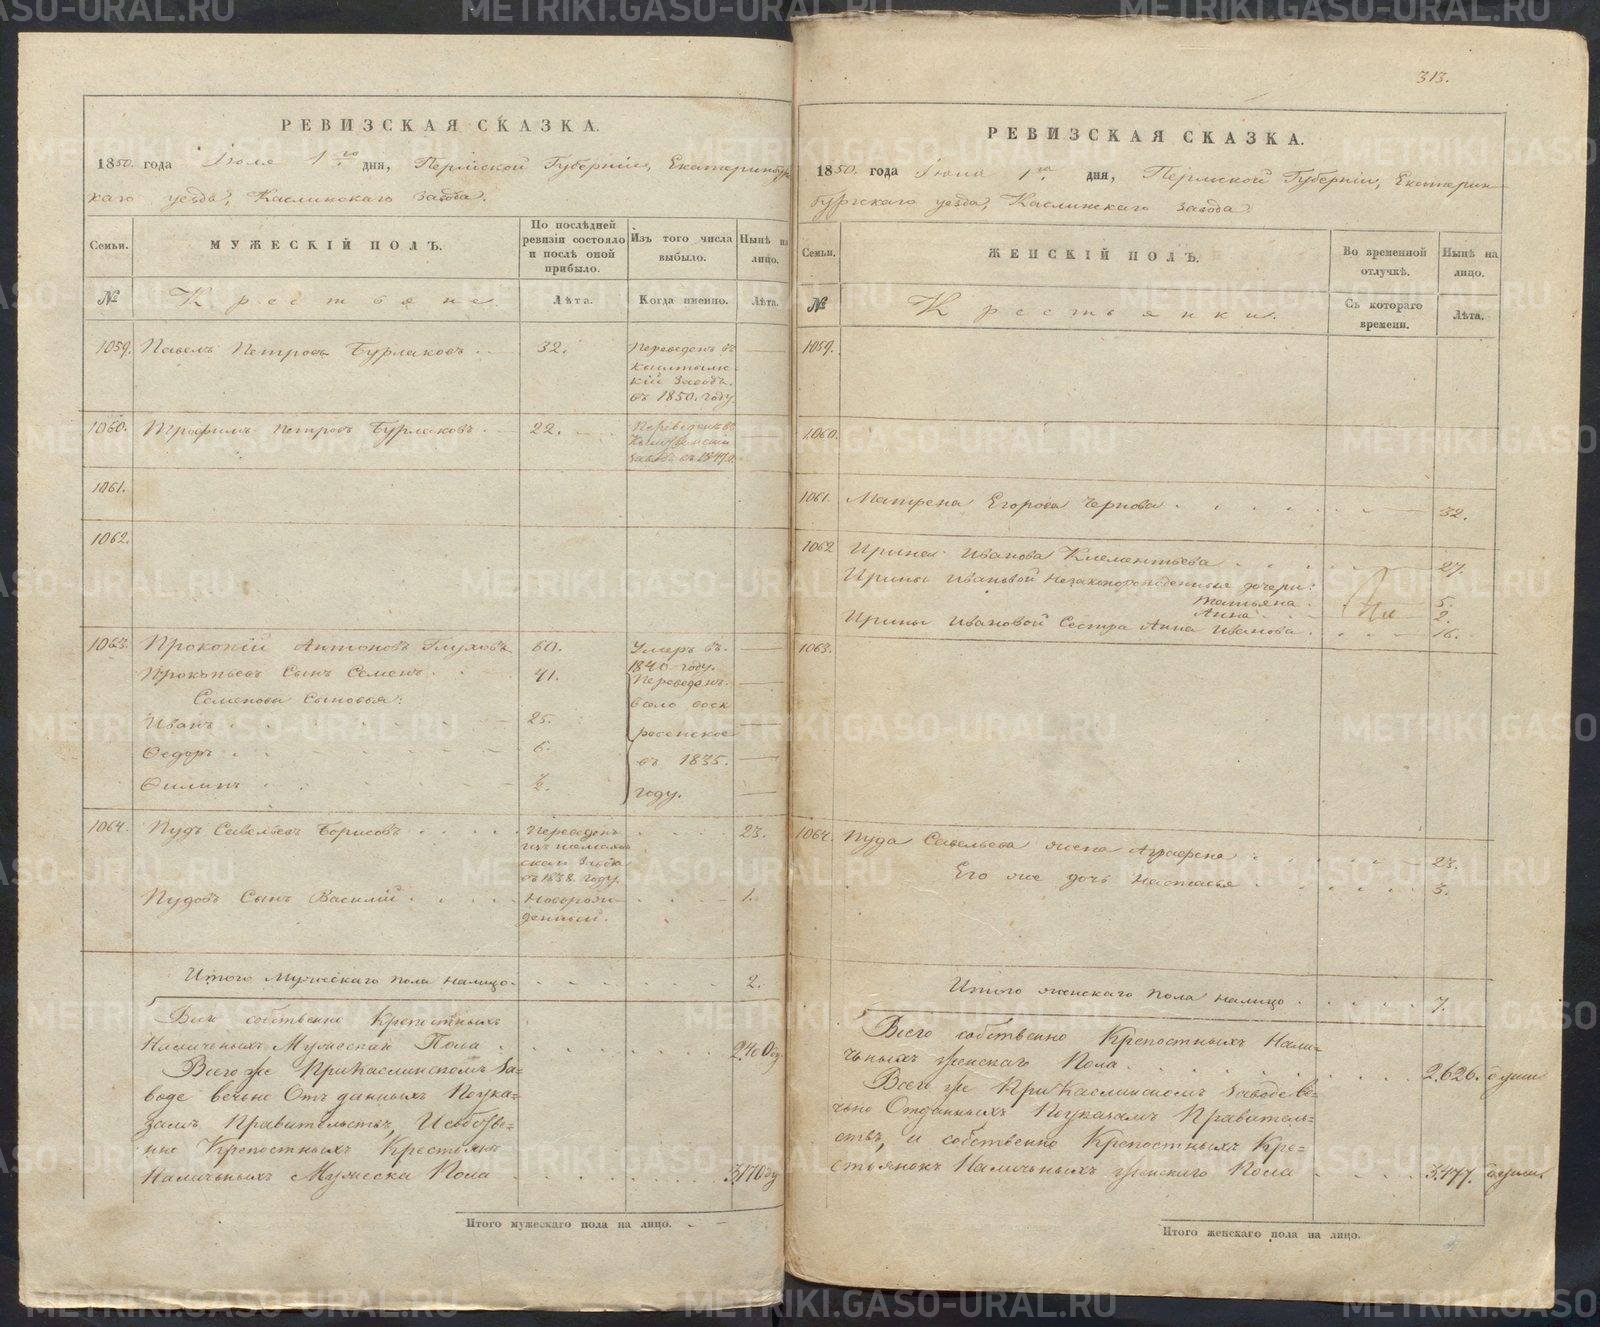 РЕВИЗСКАЯ СКАЗКА.
1850. года Июля 1го дня, Пермской Губерніи, Екатеринбургс-
каго уезда, Каслинскаго завода.
Семьи.
МУЖЕСКІЙ ПОЛЪ.
По послѣдней ревизіи состояло и послѣ оной прибыло.
Изъ того числа выбыло.
Нынѣ на лицо.
№
Крестьяне.
Лѣта.
Когда именно.
Лѣта.
1059. Павелъ Петровъ Бурлаковъ 32. Переведенъ въ
Кыштымс-
кій Заводъ
въ 1850. году
1060. Трофимъ Петровъ Бурлаковъ 22. Переведенъ въ
1061.
1062.
1063. Прокопій Антоновъ Глуховъ 60. Умеръ въ
1840 году.
Прокопьевъ Сынъ Семенъ 41. Переведенъ
Семенова Сыновья: в село воск
Иванъ 25. ресенское
Ѳедоръ 6. въ 1835.
Ѳилипъ году.
1064. Пудъ Савельевъ Борисовъ Переведенъ 23.
скаго Завода
въ 1838. году.
Пудовъ Сынъ Василій Новорож- 1.
денный.
Итого Мужескаго пола налицо 2.
Всего собственно Крепостныхъ
Наличныхъ Мужеска Пола
Всего же При Каслинскомъ За-
воде вечьно Отъданныхъ Поука-
замъ Правительствъ, И собстве-
нно Крепостныхъ Крестьянъ
Наличьныхъ Мужеска Пола
Итого мужескаго пола на лицо.
313.
РЕВИЗСКАЯ СКАЗКА.
1850. года Июля 1го дня, Пермской Губерніи, Екатерин-
бургскаго уезда, Каслинскаго завода.
Семьи.
ЖЕНСКІЙ ПОЛЪ.
Во временной отлучкѣ.
Нынѣ на лицо.
№
Крестьянки.
Съ котораго времени.
Лѣта.
1059.
1060.
1061. Матрена Егорова Чернова 32.
1062 Ирина Иванова Клементьева 27.
Ирины Ивановой Незаконорожденныя дочери:
Татьяна 5.
Анна 2.
Ирины Ивановой Сестра Анна Иванова 16.
1063.
1064. Пуда Савельева жена Аграфена 23.
Его же дочь Настасья 3.
Итого женскаго пола налицо 7.
Всего собственно Крепостныхъ Нали-
чьныхъ женскаго Пола 2.626. душъ
Всего же При Каслинскомъ Заводе ве-
чьно Отданныхъ Поуказамъ Правитель-
ствъ, и собственно Крепостныхъ Кре-
стьянокъ Наличьныхъ женскаго Пола 3.477.
Итого женскаго пола на лицо.
METRIKI.GASO-URAL.RU